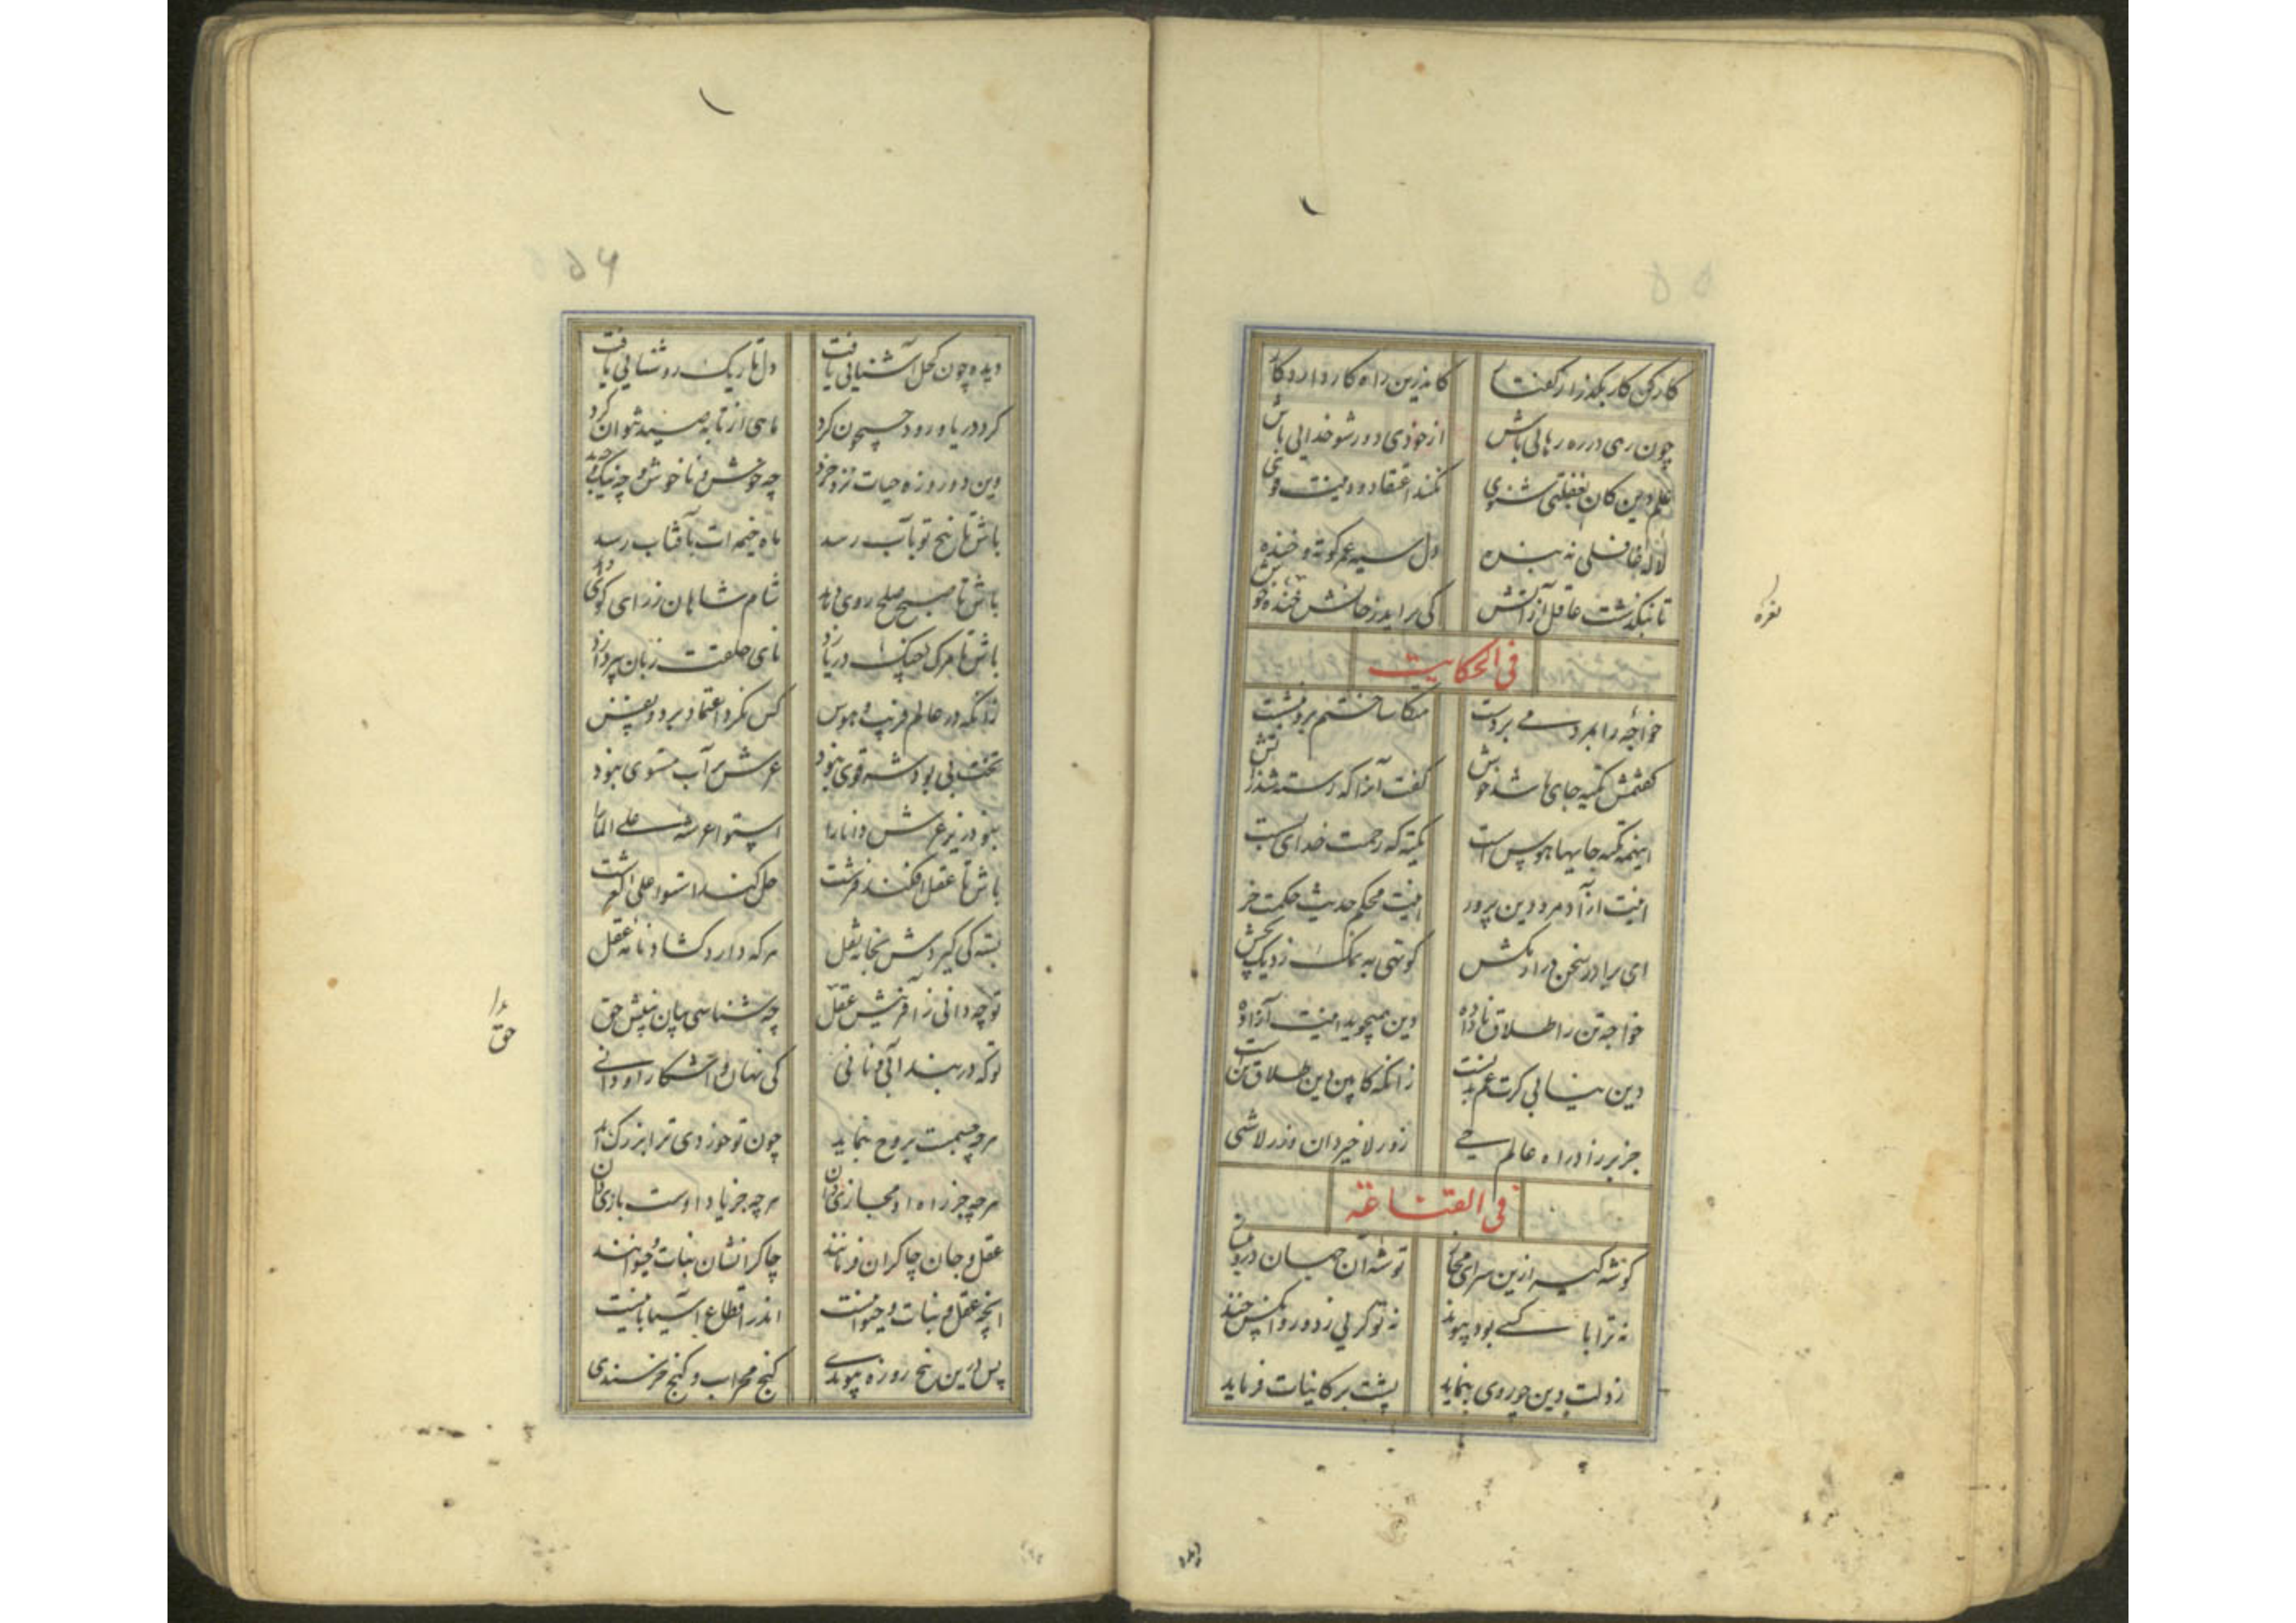 کار کن کار بگذر از گفتار کاندرین راه کار دارد کار
چون رهی در ره رهائی باش از خودی دور شو خدایی باش
علم دین کان بغفلتی شنوی نکند اعتقاد و دینت قوی
لاله غافلی نه بنده دل سیه عمر کوته و خنده
تا نبگذشت عاقل از آتش کی براید ز جانش خنده خوش
نعره
فی الحکایت
خواجه را بمرد متکا ساختم بر و پشت
گفتمش تکیه جای ها شد خوش گفت آنرا که رسته شد ز آتش
اینهمه تکیه جایها هوس است تکیه که رحمت خدای بست
اینت آزاد مرد دین پرور اینت محکم حدیث حکمت خر
ای برادر سخن دراز مکش کوتهی به نمک ز دیک بچش
خواجه تن را طلاق ناداده دین همیجوید اینت آزاده
دین نیابی کرت غم بدنست زانکه کابین دین طلاق تن است
جز براز در راه عالم حی زور لا خیر دان و زر لاشی
فی القناعة
گوشه گیر ازین سرای مجاز توشه آن جهان درو
نه ترا با کسی بود پیوند نه تو گریی ز دور و کس خند
ز دلت دین چو روی بنماید پشت بر کاینات فرماید
۵۶
دیده چون کحل آشنایی یافت دل تاریک روشنایی یافت
کرد دریا و رود جیحون کرد ماهی از تابه صید نتوان کرد
وین دو روزه حیات نزد خرد چه خوش و ناخوش و چه نیک و چه بد
باش تا نخ تو بآب رسد ماه خیمه ات بآفتاب رسد
باش تا صبح صلح روی نماید شام شاهان ز رای
باش تا مرگ دریازد نای حلقت زبان بپردازد
زانکه در عالم فریب و هوس کس نکرد اعتماد بر دو نفس
تخت بی بود شه قوی نبود عرش بر آب مستوی نبود
بنودر زیر عرش دانا را استوا عرشه علی الما را
باش تا عقل افکند فرشت حل کند استوا علی العرشت
بسته کی گیردش بخانه نقل هر که دارد گشادنامه عقل
تو چه دانی ز آفرینش عقل چه شناسی میان بینش حق
حق را
تو که در بند آبی و نانی کی نهان و آشکارا دانی
هر چه چشمت بروح بنماید چون تو خوردی ترا بزرک آید
هر چه جز راه او مجازی دان هر چه جز یاد اوست بازی دان
عقل و جان چاکران فرمانند چاکرانشان نبات و حیوانند
آنچه عقل و نبات و حیوانست اندر اقطاع آسیابانیست
پس درین پنج روزه پیوندی کنج محراب و گنج خرسندی